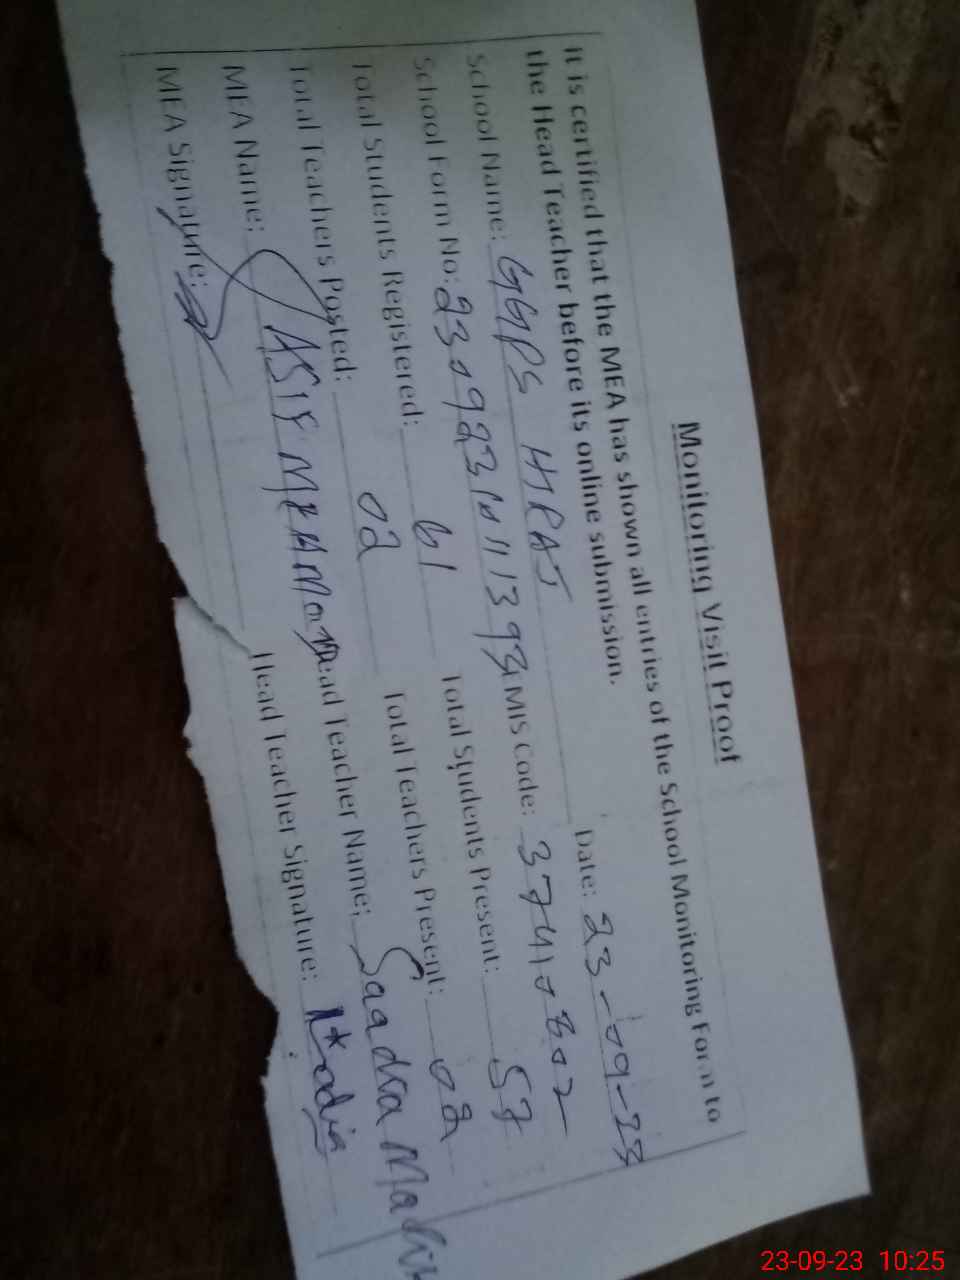 Monitoring Visit Proof
It is certified that the MEA has shown all entries of the School Monitoring Form to
the Head Teacher before its online submission.
Date: 23-09-23
School Name: GGPS HIRAJ
School Form No: EMIS Code: 37410302
Total Students Registered: 61 Total Students Present: 57
Total Teachers Posted: 02 Total Teachers Present: 02
MEA Name: ASIF Head Teacher Name: Saadia
MEA Signature: Head Teacher Signature:
23-09-23 10:25